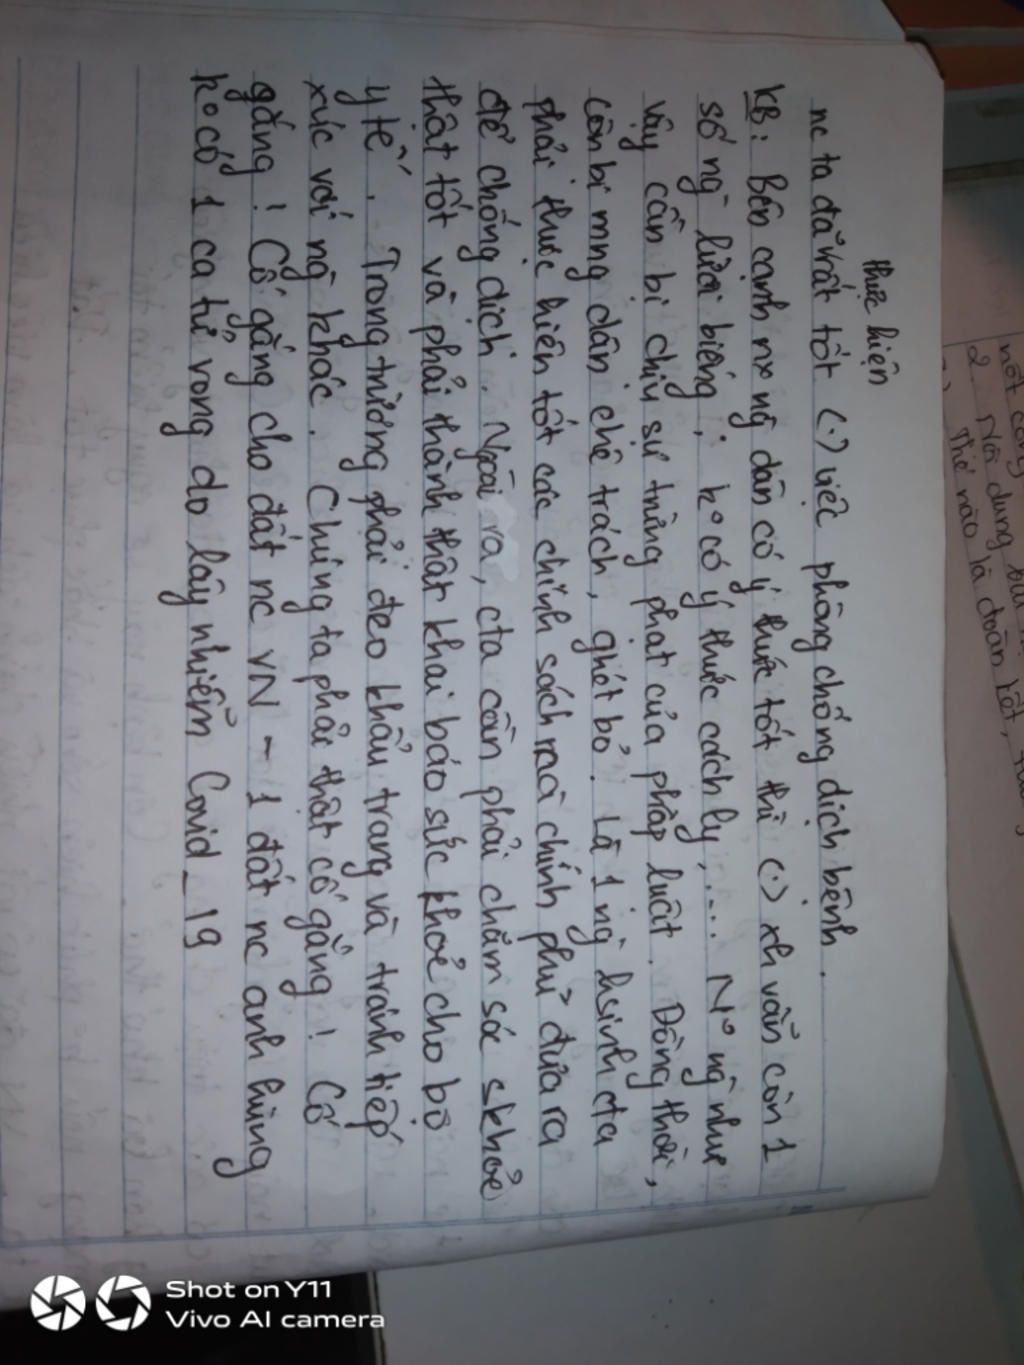 thực hiện
nc ta đã rất tốt (.) việc phòng chống dịch bệnh.
KB: Bên cạnh n~ ng dân có ý thức tốt thì (.) xh vẫn còn 1
số ng lười biếng; ko có ý thức cách ly,.... No ng như
vậy cần bị chịu sự trừng phạt của pháp luật. Đồng thời,
còn bị mng dân chê trách, ghét bỏ. Là 1 ng hsinh cta
phải thực hiện tốt các chính sách mà chính phủ đưa ra
để chống dịch. Ngoài ra, cta cần phải chăm sóc skhoẻ
thật tốt và phải thành thật khai báo sức khoẻ cho bộ
y tế. Trong trường phải đeo khẩu trang và tránh tiếp
xúc với ng khác. Chúng ta phải thật cố gắng! Cố
gắng! Cố gắng cho đất nc VN - 1 đất nc anh hùng
ko có 1 ca tử vong do lây nhiễm Covid_19
nốt cùng
2. Nội dung bài
Thế nào là đoàn kết,
Shot on Y11
Vivo AI camera